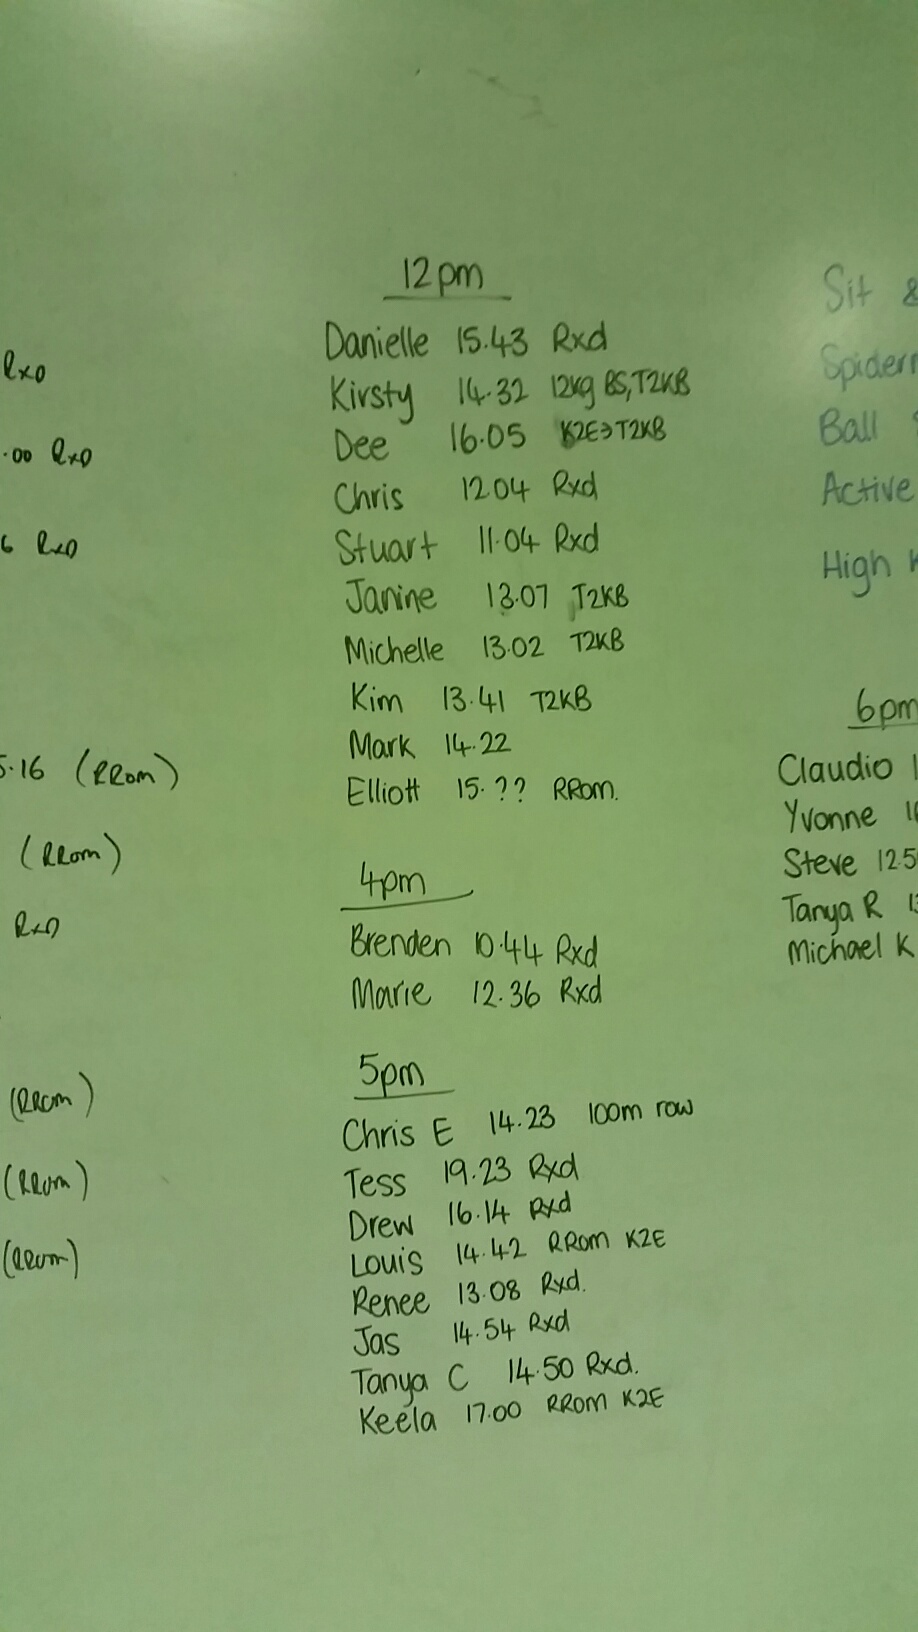 Rxd
.00 Rxd
6 Rxd
5.16 (RRom)
(RRom)
Rxd
(RRom)
(RRom)
(RRom)
12pm
Danielle 15.43 Rxd
Kirsty 14.32 12kg BS, T2KB
Dee 16.05 K2E→T2KB
Chris 12.04 Rxd
Stuart 11.04 Rxd
Janine 13.07 T2KB
Michelle 13.02 T2KB
Kim 13.41 T2KB
Mark 14.22
Elliott 15.?? RRom.
4pm
Brenden 10.44 Rxd
Marie 12.36 Rxd
5pm
Chris E 14.23 100m row
Tess 19.23 Rxd
Drew 16.14 Rxd
Louis 14.42 RRom K2E
Renee 13.08 Rxd.
Jas 14.54 Rxd
Tanya C 14.50 Rxd.
Keela 17.00 RRom K2E
Sit &
Spider
Ball
Active
High
6pm
Claudio 1
Yvonne
Steve 12.5
Tanya R
Michael K